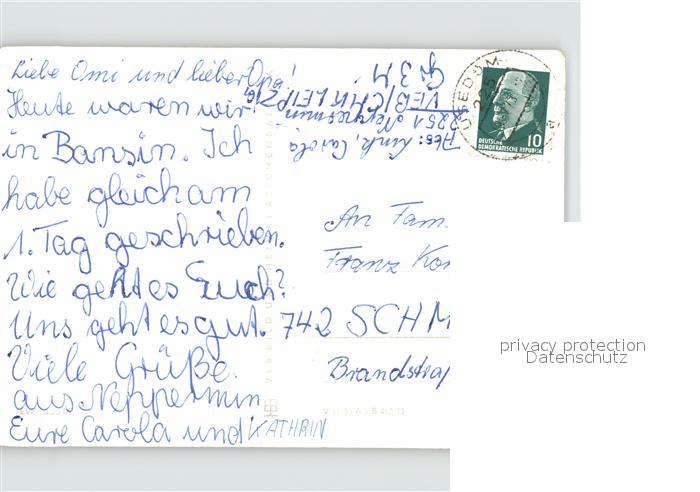 Liebe Omi und lieber Opa!
Heute waren wir
in Bansin. Ich
habe gleich am
1. Tag geschrieben.
Wie geht es Euch?
Uns geht es gut.
Viele Grüße
aus Neppermin
Eure Carola und KATHRIN
Abs: Link, Carola
2251 Neppermin
VEB/CHK LEIPZIG
G 3 M
USEDOM
DEUTSCHE
DEMOKRATISCHE REPUBLIK
10
An Fam.
Franz Kor
742 SCHM
Brandstraß
privacy protection
Datenschutz